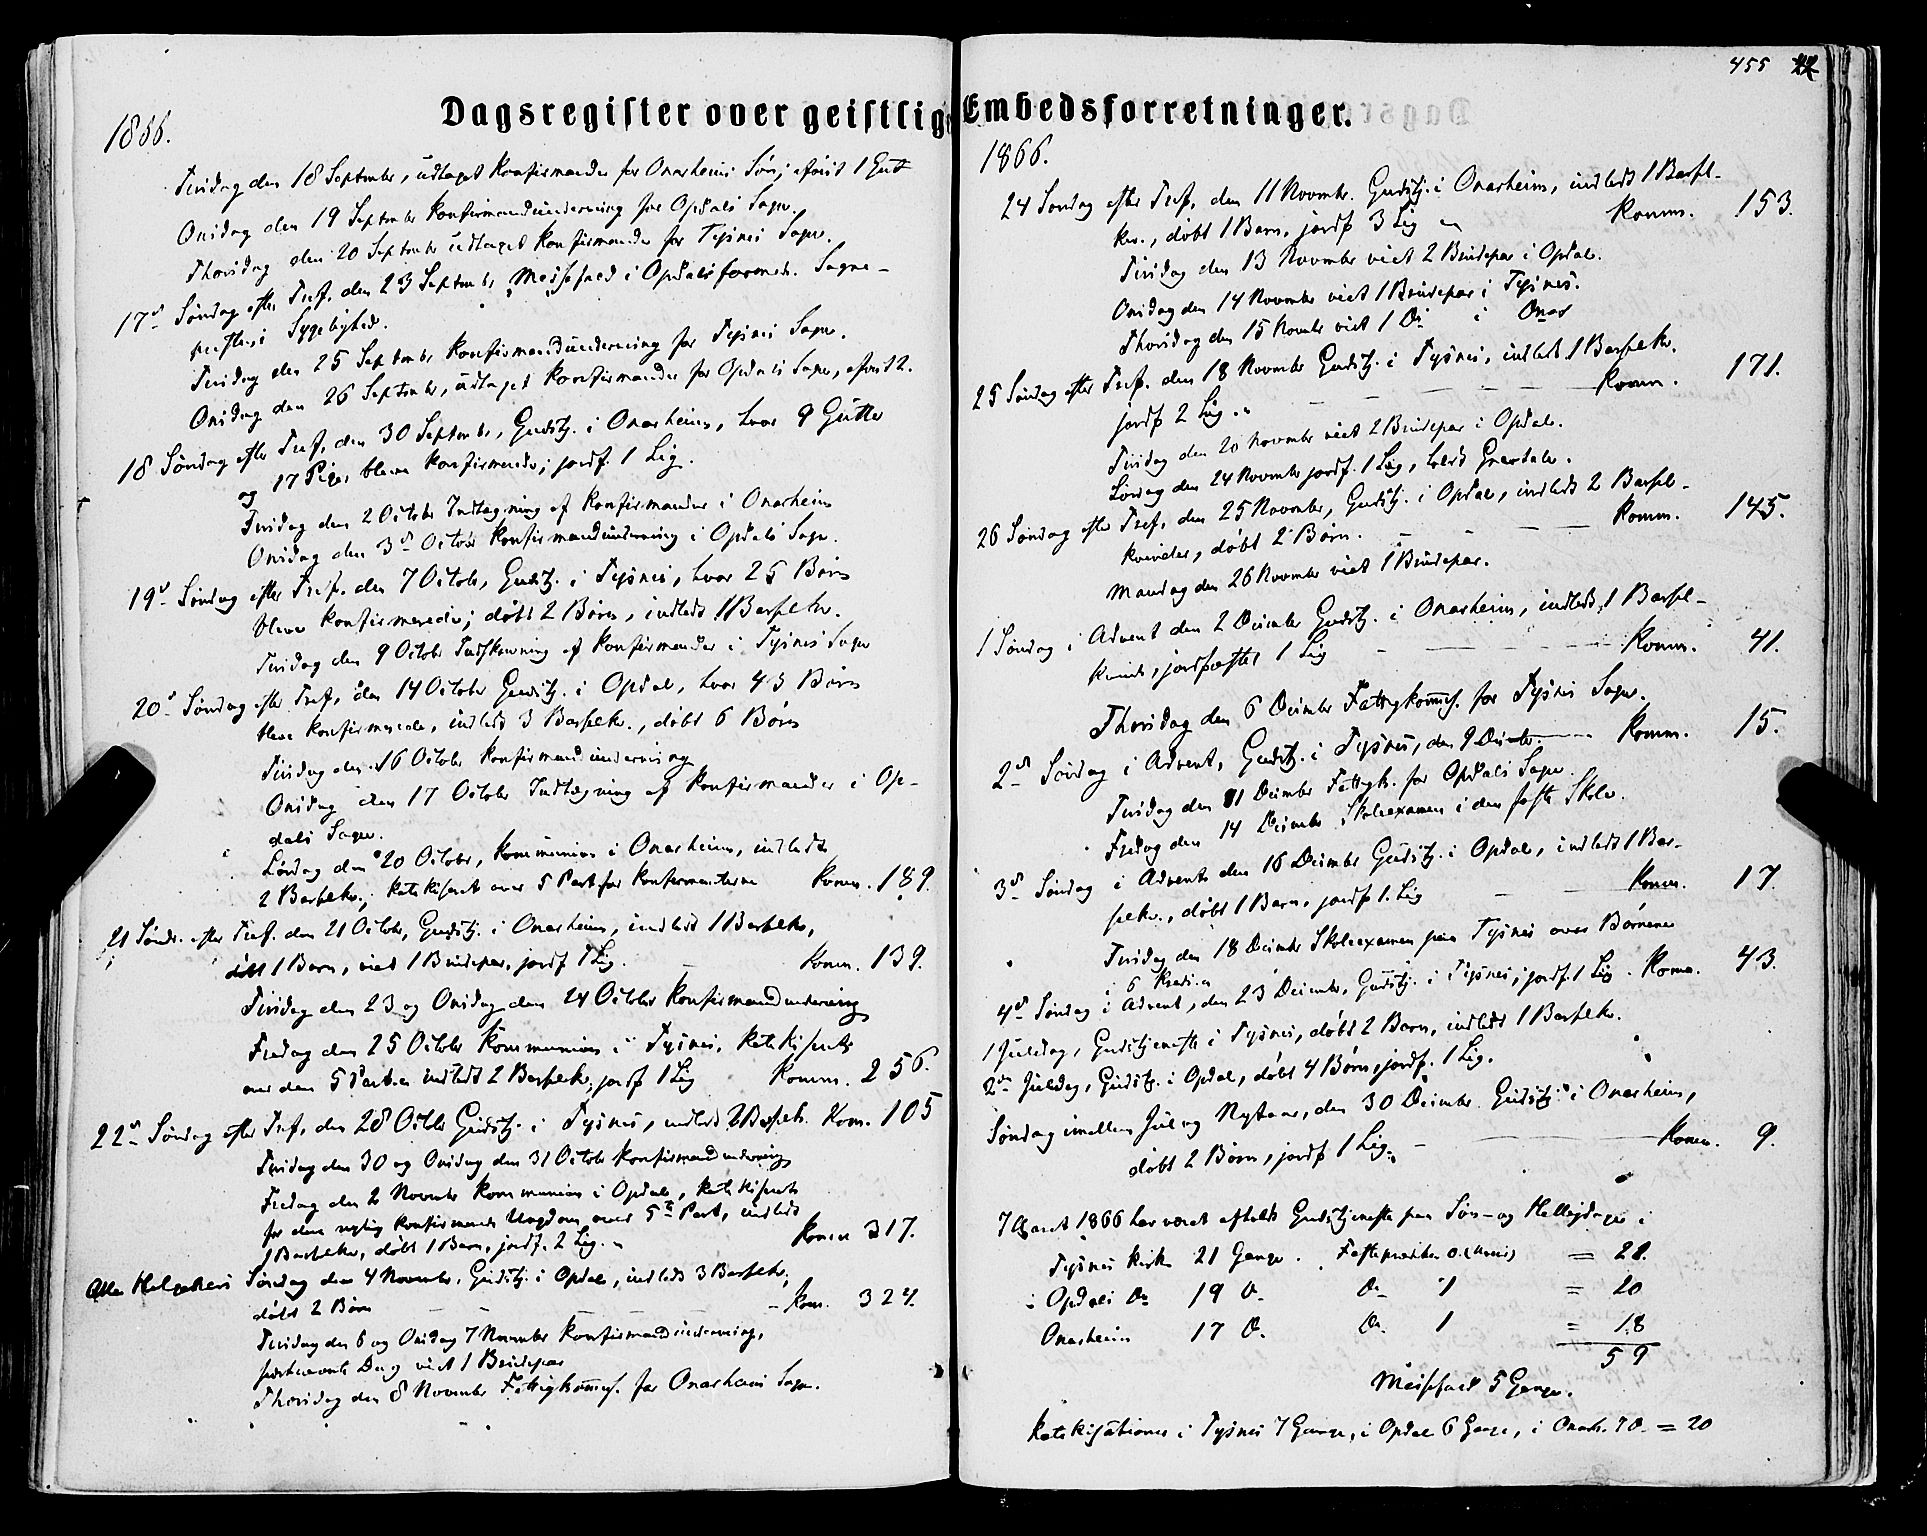 455
Dagsregister over geistlige Embedsforretninger.
1866.
Tirsdag den 18 September, udtaget Konfirmander for Onarheims Sogn; afvist 1 Gut
Onsdag den 19 September Konfirmandunderviisning for Opdals Sogn.
Thorsdag den 20 September udtaget Konfirmander for Tysnes Sogn.
17de Søndag efter Tref. den 23 September Messefald i Opdal formed. Sogne-
præstens Sygelighed.
Tirsdag den 25 September Konfirmandunderviisning for Tysnes Sogn.
Onsdag den 26 September, udtaget Konfirmander for Opdals Sogn, afvist 2.
18 Søndag efter Tref. den 30 September, Gudstj. i Onarheim, hvor 9 Gutter
og 17 Piger bleve Konfirmerede; jordf. 1 Lig.
Tirsdag den 2 October Indtagning af Konfirmander i Onarheim
Onsdag den 3de October Konfirmandunderviisning i Opdals Sogn.
19de Søndag efter Tref. den 7 October, Gudstj. i Tysnes, hvor 25 Børn
bleve Konfirmerede; døbt 2 Børn, indledt 1 Barselkv.
Tirsdag den 9 October Indskrivning af Konfirmander i Tysnes Sogn
20de Søndag efter Tref. den 14 October Gudstj. i Opdal, hvor 43 Børn
bleve Konfirmerede, indledt 3 Barselkv., døbt 6 Børn
Tirsdag den 16 October Konfirmandunderviisning
Onsdag den 17 October Indtagning af Konfirmander i Op-
dals Sogn.
Lørdag den 20 October, Kommunion i Onarheim, indledt
2 Barselkv.; Katekiseret over 5 Part for Konfirmanterne Komm. 189.
21 Sønd. efter Tref. den 21 October, Gudstj. i Onarheim, indledt 1 Barselkv,
døbt 1 Barn, viet 1 Brudepar, jordf 1 Lig. Komm. 139.
Tirsdag den 23 og Onsdag den 24 October Konfirmandunderviisning
Fredag den 25 October Kommunion i Tysnes, Katekiseret
over den 5 Part. indledt 2 Barselkv, jordf 1 Lig Komm. 256.
22de Søndag efter Tref. den 28 Octbr Gudstj. i Tysnes, indledt 2 Barselk. Kom. 105
Tirsdag den 30 og Onsdag den 31 October Konfirmandunderviisning
Fredag den 2 November Kommunion i Opdal, Katekiseret
for den nylig konfirmerede Ungdom over 5te Part, indledt
1 Barselkv, døbt 1 Barn, jordf. 2 Lig. Komm 317.
Alle Helgens Søndag den 4 November, Gudstj. i Opdal, indledt 3 Barselkv,
døbt 2 Børn — Kom. 324.
Tirsdag den 6 og Onsdag 7 November Konfirmandunderviisning,
sidstnævnte Dag viet 1 Brudepar
Thorsdag den 8 November Fattigkomms. for Onarheims Sogn.
1866.
24 Søndag efter Tref. den 11 Novembr. Gudstj. i Onarheim, indledt 1 Barsel-
kv., døbt 1 Barn, jordf 3 Lig Komm. 153.
Tirsdag den 13 November viet 2 Brudepar i Opdal.
Onsdag den 14 November viet 1 Brudepar i Tysnes.
Thorsdag den 15 Novembr viet 1 Do i Onar
25 Søndag efter Tref. den 18 November Gudstj. i Tysnes, indledt 1 Barselkv.
jordf 2 Lig. — Komm. 171.
Tirsdag den 20 November viet 2 Brudepar i Opdal.
Lørdag den 24 November jordf. 1 Lig, holdt Gravtale.
26 Søndag efter Tref. den 25 November, Gudstj. i Opdal, indledt 2 Barsel-
kvinder, døbt 2 Børn. — Komm. 145.
Mandag den 26 November viet 1 Brudepar.
1 Søndag i Advent den 2 December Gudstj. i Onarheim, indledt 1 Barsel-
kvinde, jordfæstet 1 Lig — Komm. 41.
Thorsdag den 6 December Fattigkomms. for Tysnes Sogn.
2de Søndag i Advent, Gudstj. i Tysnes, den 9 Decmbr. — Komm. 15.
Tirsdag den 11 December Fattigk. for Opdals Sogn.
Fredag den 14 December Skoleexamen i den faste Skole.
3de Søndag i Advent den 16 December Gudstj. i Opdal, indledt 1 Bar-
selkv., døbt 1 Barn, jordf 1. Lig — Komm. 17.
Tirsdag den 18 December Skoleexamen paa Tysnes over Børnene
i 6 Kredse
4de Søndag i Advent, den 23 December, Gudstj. i Tysnes, jordf. 1 Lig. Komm. 43.
1 Juledag, Gudstjeneste i Tysnes, døbt 2 Børn, indledt 1 Barselkv.
2den Juledag, Gudstj. i Opdal, døbt 4 Børn, jordf. 1 Lig.
Søndag imellem Jul og Nytaar, den 30 December Gudstj. i Onarheim,
døbt 2 Børn, jordf 1 Lig. — Komm. 9.
I Aaret 1866 har været afholdt Gudstjeneste paa Søn- og Helligdage i
Tysnes Kirke 21 Gange. Fasteprædiken 0. = 21.
i Opdals Do 19 D. Do 1 = 20
Onarheim 17 D. Do. 1 = 18
59
Messefald 5 Gange.
Katekisationer i Tysnes 7 Gange, i Opdal 6 Gange, i Onarh. 7 D. = 20